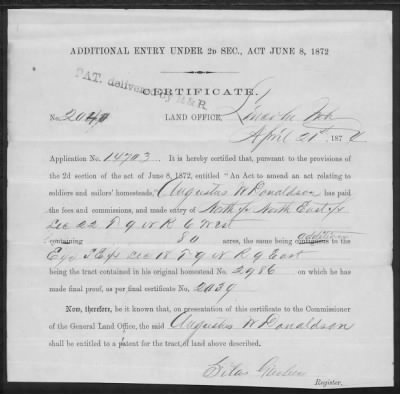 ADDITIONAL ENTRY UNDER 2D SEC., ACT JUNE 8, 1872
PAT. delivered by M&R
CERTIFICATE.
No. 2040 LAND OFFICE,
April 21st, 187
Application No. 14703. It is hereby certified that, pursuant to the provisions
of the 2d section of the act of June 8, 1872, entitled "An Act to amend an act relating to
soldiers and sailors' homesteads," Augustus W Donaldson has paid
the fees and commissions, and made entry of North ½ North East ¼
Sec 22 T 9 N R 6 West
containing 80 acres, the same being additional to the
E ½ S E ¼ Sec 18 T 9 N R 9 East
being the tract contained in his original homestead No. 2986 on which he has
made final proof, as per final certificate No. 2039
Now, therefore, be it known, that on presentation of this certificate to the Commissioner
of the General Land Office, the said Augustus W Donaldson
shall be entitled to a patent for the tract of land above described.
Silas Garber
Register.